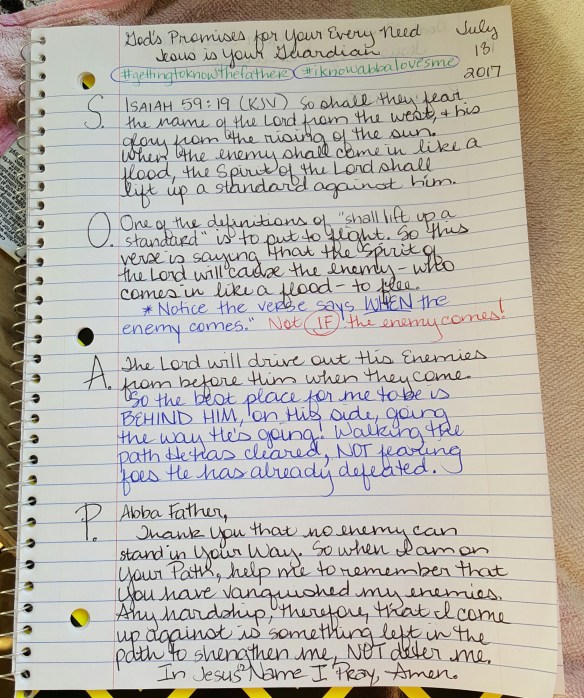 God's Promises for Your Every Need
Jesus is Your Guardian
July
18
2017
#gettingtoknowthefather #iknowabbalovesme
S. ISAIAH 59:19 (KJV) So shall they fear
the name of the Lord from the west, & his
glory from the rising of the sun.
When the enemy shall come in like a
flood, the Spirit of the Lord shall
lift up a standard against him.
O. One of the definitions of "shall lift up a
standard" is to put to flight. So this
verse is saying that the Spirit of
the Lord will cause the enemy - who
comes in like a flood - to flee.
* Notice the verse says WHEN the
enemy comes." Not IF the enemy comes!
A. The Lord will drive out His Enemies
from before Him when they come.
So the best place for me to be is
BEHIND HIM, on His side, going
the way He's going! Walking the
path He has cleared, NOT fearing
foes He has already defeated.
P. Abba Father,
Thank You that no enemy can
stand in Your Way. So when I am on
Your Path, help me to remember that
You have vanquished my enemies.
Any hardship, therefore, that I come
up against is something left in the
path to strengthen me, NOT deter me.
In Jesus' Name I Pray, Amen.